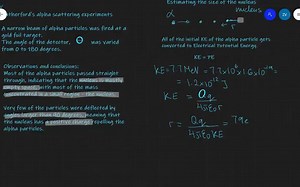 Rutherford's alpha scattering experiments
A narrow beam of alpha particles was fired at a
gold foil target.
The angle of the detector, θ was varied
from 0 to 180 degrees.
Observations and conclusions:
Most of the alpha particles passed straight
through, indicating that the nucleus is mostly
empty space, with most of the mass
concentrated in a small region - the nucleus.
Very few of the particles were deflected by
angles larger than 90 degrees, meaning that
the nucleus has a positive charge repelling the
alpha particles.
Estimating the size of the nucleus
nucleus
α
r
All of the initial KE of the alpha particle gets
converted to Electrical Potential Energy.
KE = PE
KE=7.7MeV = 7.7×10⁶×1.6×10⁻¹⁹=
= 1.2×10⁻¹² J
KE = Qq / 4πε₀r
r = Qq / 4πε₀KE = 79e